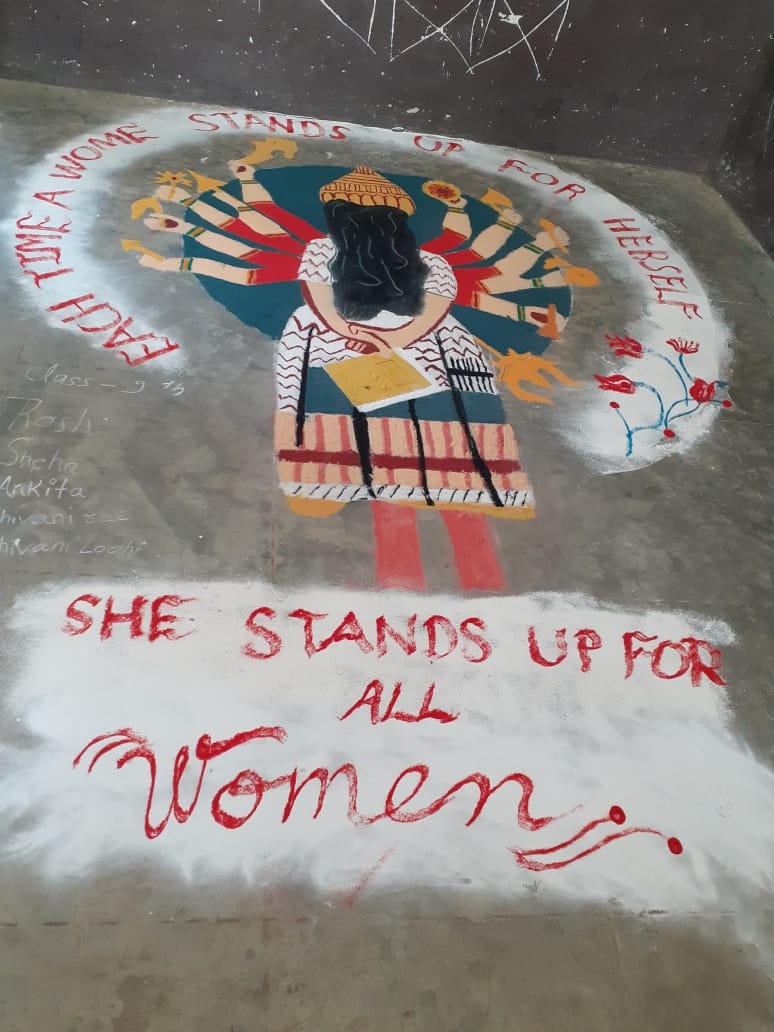 EACH TIME A WOME STANDS UP FOR HERSELF
Class - 9th
Sneha
Ankita
hivani rai
hivani Lodhi
SHE STANDS UP FOR
ALL
Women